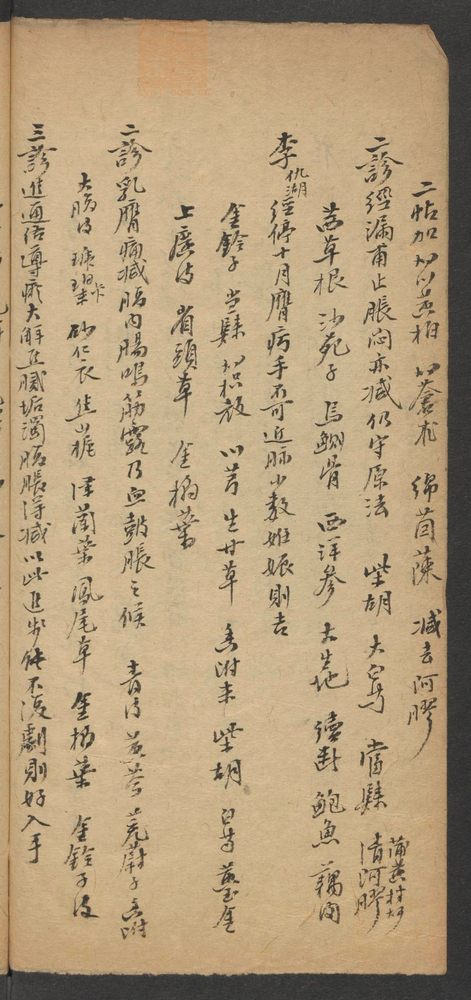 二帖加 川黄柏 川蒼朮 綿茵陳 減去阿膠
二診經漏甫止脹悶亦減仍守原法 柴胡 大白芍 當歸 蒲黃拌炒清阿膠
茜草根 沙苑子 烏鰂骨 西洋參 大生地 續斷 鮑魚 藕肉
李 仇湖 經停十月膺病手不可近脉少數姙娠則吉
金鈴子 當歸 川枳殼 川芎 生甘草 香附末 柴胡 白芍 鬱金
上廣皮 省頭草 金橘葉
二診乳膺痛減腸內腸鳴筋露乃血鼓脹之候 青皮 黃芩 茺蔚子 香附
大腹皮 琥珀 砂仁衣 焦山梔 澤蘭葉 鳳尾草 金橘葉 金鈴子皮
三診進通 瘀大解 膩垢濁 脹得減以此進步能不復劇則好入手